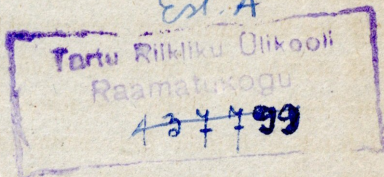 Est. A
Tartu Riikliku Ülikooli
Raamatukogu
437799